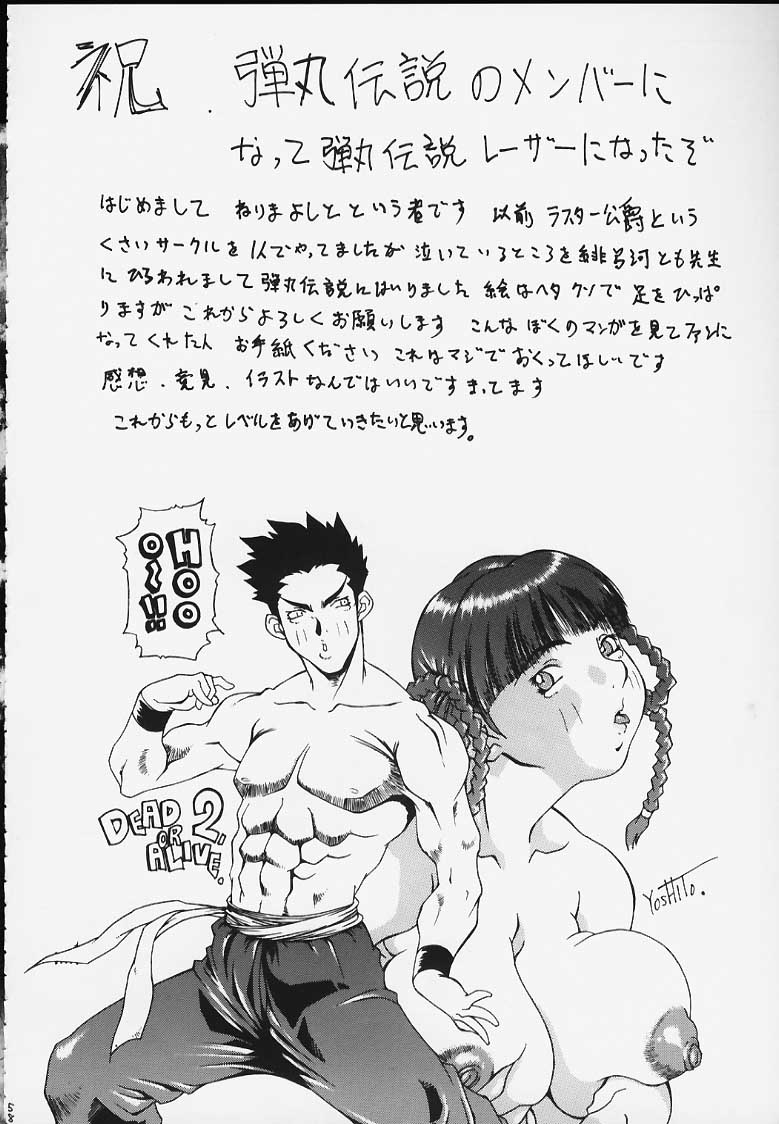 祝. 弾丸伝説のメンバーに
なって弾丸伝説レーザーになったぞ
はじめまして ねりまよしとという者です 以前 ラスター公爵という
くさいサークルを1人でやってましたが 泣いているところを緋呂河とも先生
にひろわれまして弾丸伝説にはいりました 絵はヘタクソで足をひっぱ
りますが これからよろしくお願いします こんなぼくのマンガを見てファンに
なってくれた人 お手紙ください これはマジでおくってほしいです
感想.意見.イラストなんでもいいです まってます
これからもっとレベルをあげていきたいと思います。
HOO
O~!!
DEAD
OR
ALIVE.
2.
YosHITo.
58